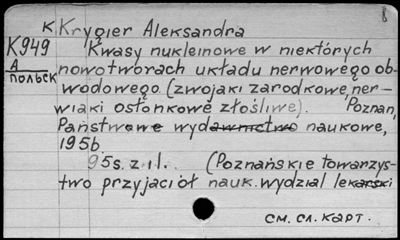 К Krygier Aleksandra
K949 Kwasy nukleinowe w niektórych
A nowotworach układu nerwowego ob-
польск wodowego (zwojaki zarodkowe, ner-
wiaki osłonkowe złośliwe). Poznań,
Państwowe wydawnictwo naukowe,
1956
95s. z il. (Poznańskie towarzys-
two przyjaciół nauk. wydział lekarski
см. сл. карт.